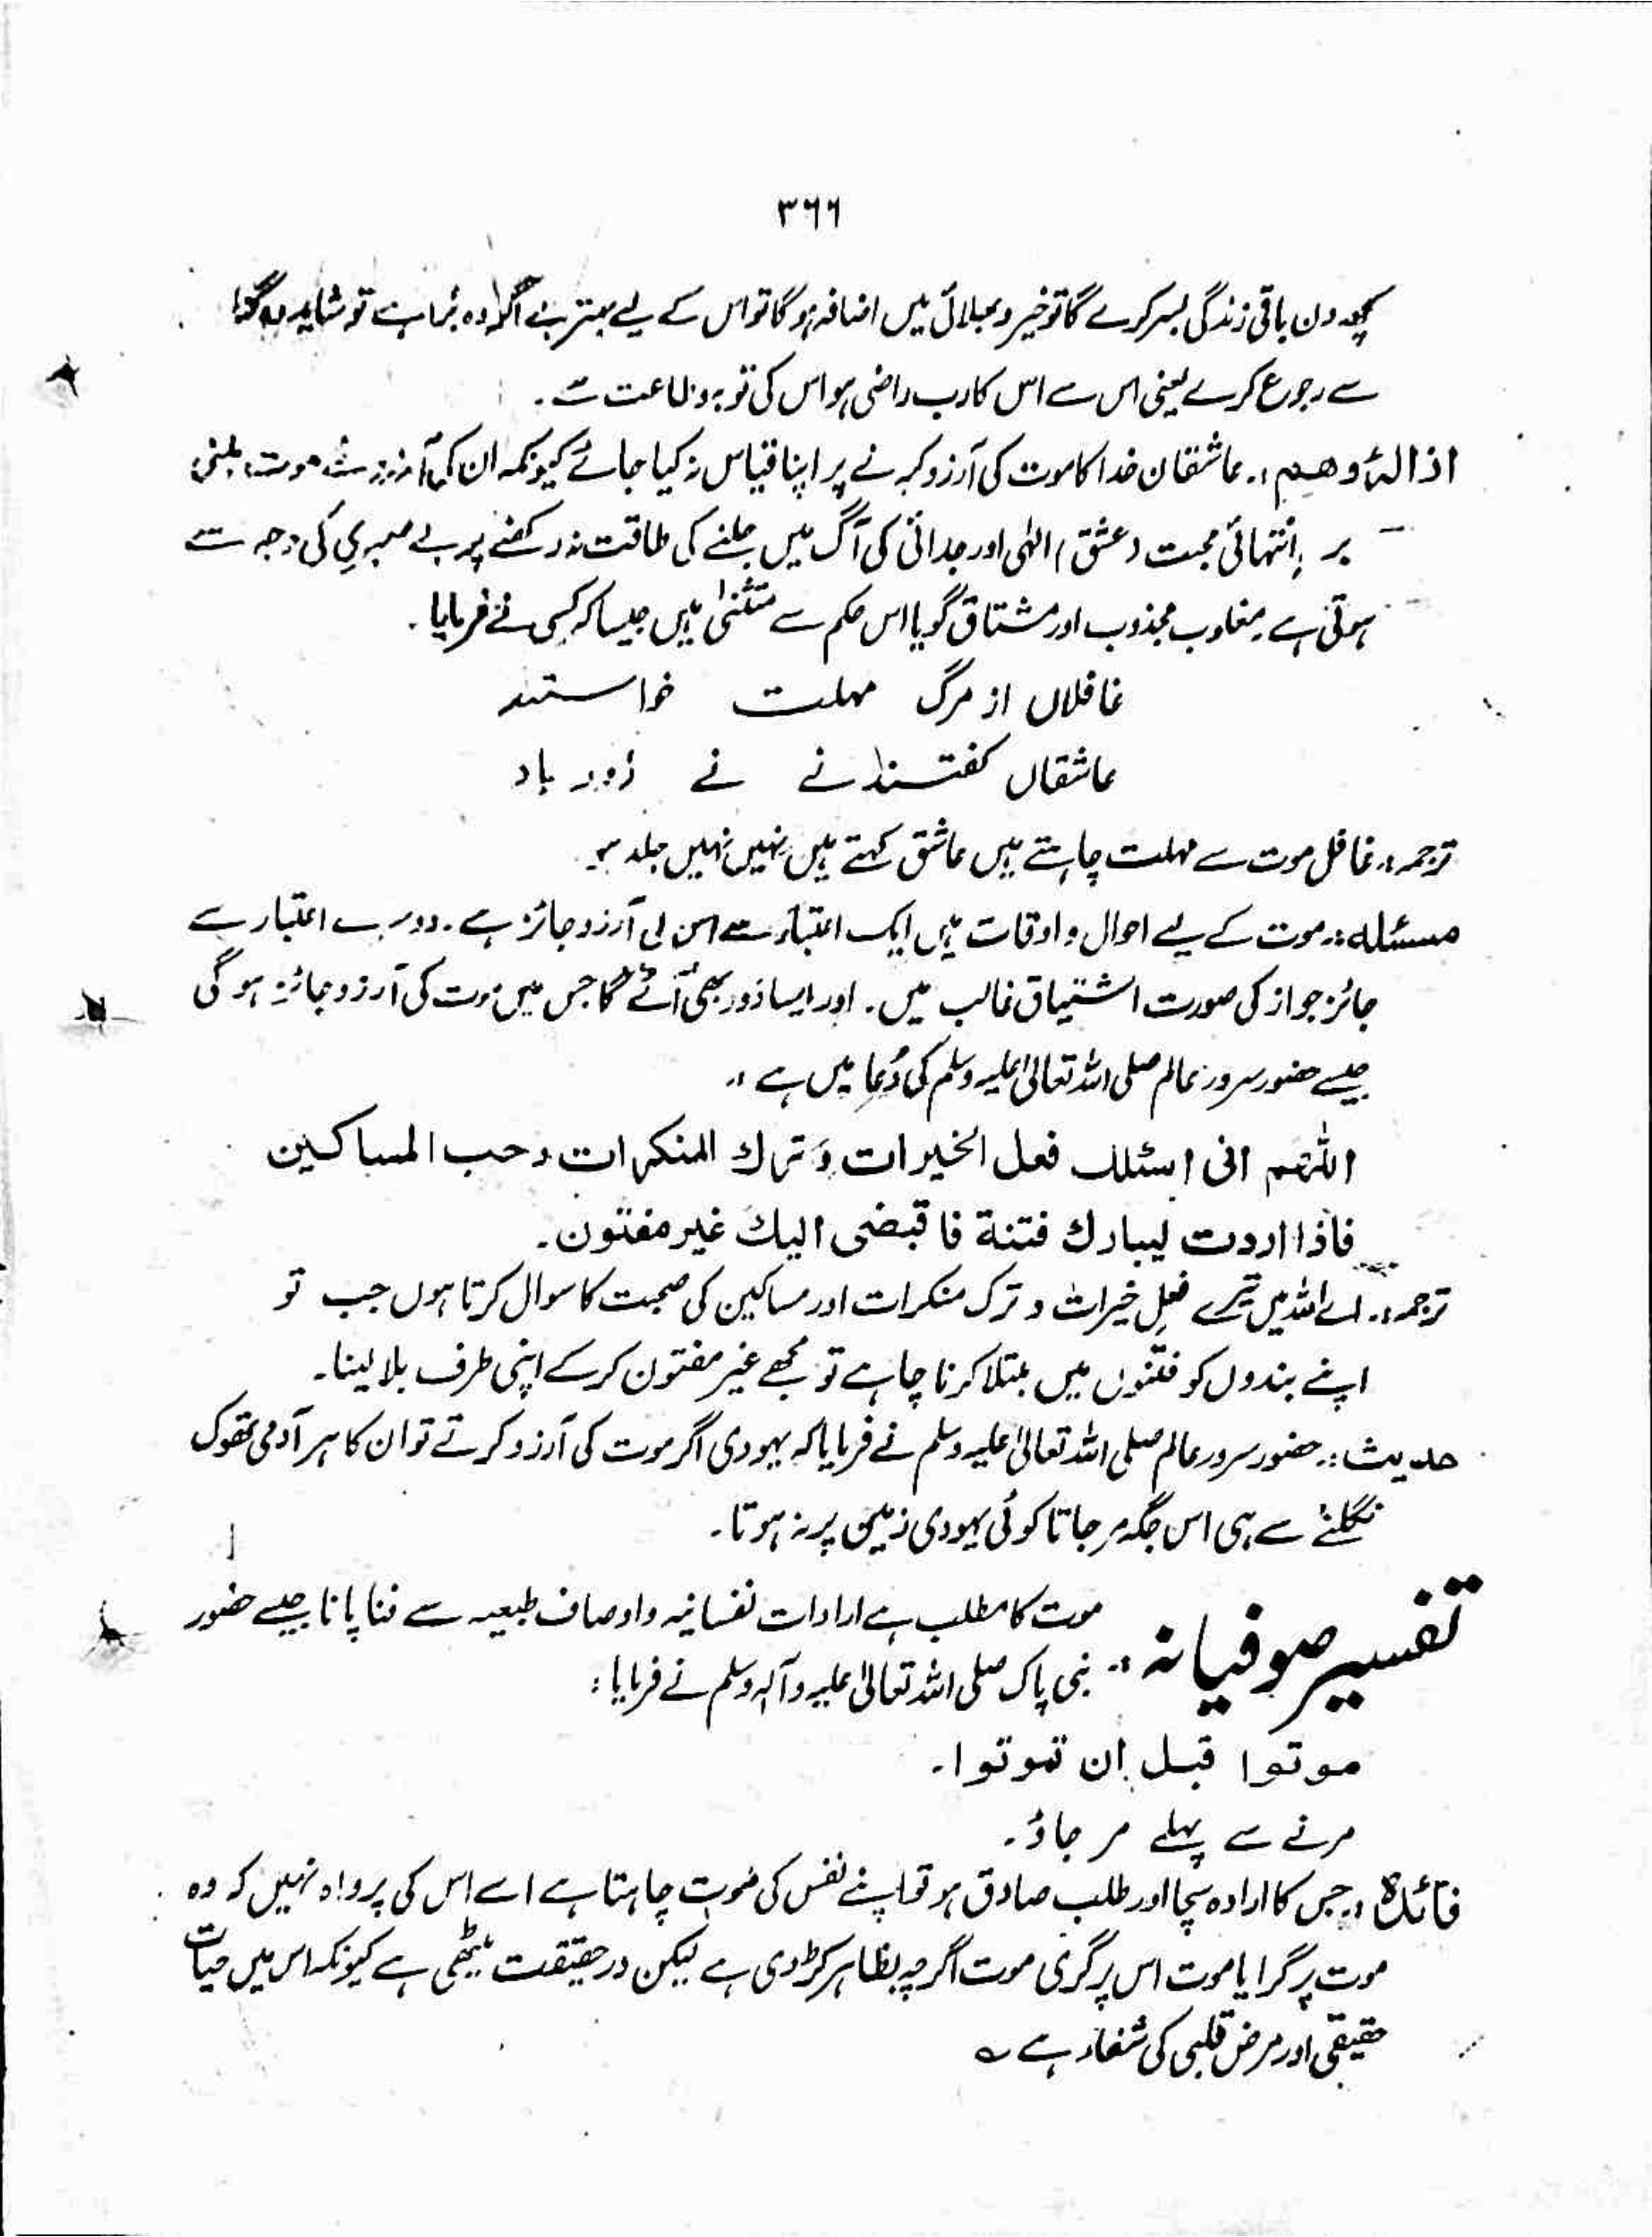 ٣٦٦
کچھ دن باقی زندگی بسر کرے گا تو خیر و بھلائی میں اضافہ ہوگا تو اس کے لیے بہتر ہے اگر وہ بُرا ہے تو شاید وہ گناہ
سے رجوع کرے یعنی اس سے اس کا رب راضی ہو اس کی توبہ و طاعت سے۔
ازالۂ وھم :۔ عاشقان خدا کا موت کی آرزو کرنے پر اپنا قیاس نہ کیا جائے کیونکہ ان کی آرزوئے موت مبنی
بر انتہائی محبت (عشق) الٰہی اور جدائی کی آگ میں جلنے کی طاقت نہ رکھنے پر بے صبری کی وجہ سے
ہوتی ہے مغلوب مجذوب اور مشتاق گویا اس حکم سے مستثنیٰ ہیں جیسا کہ کسی نے فرمایا۔
غافلاں از مرگ مہلت خواستند
عاشقاں گفتند نے نے زُود باد
ترجمہ :۔ غافل موت سے مہلت چاہتے ہیں عاشق کہتے ہیں نہیں نہیں جلد ہو۔
مسئلہ :۔ موت کے لیے احوال و اوقات ہیں ایک اعتبار سے اس کی آرزو جائز ہے۔ دوسرے اعتبار سے
جائز جواز کی صورت اشتیاق غالب میں۔ اور ایسا دور بھی آئے گا جس میں موت کی آرزو جائز ہوگی
جیسے حضور سرور عالم صلی اللہ تعالیٰ علیہ وسلم کی دُعا میں ہے :۔
اللٰھم انی اسئلک فعل الخیرات وَ ترک المنکرات و حب المساکین
فاذا اردت لیبادک فتنة فاقبضی الیک غیر مفتون۔
ترجمہ :۔ اے اللہ میں تیرے فعلِ خیرات و ترک منکرات اور مساکین کی صحبت کا سوال کرتا ہوں جب تو
اپنے بندوں کو فتنوں میں مبتلا کرنا چاہے تو مجھے غیر مفتون کرکے اپنی طرف بلا لینا۔
حدیث :۔ حضور سرور عالم صلی اللہ تعالیٰ علیہ وسلم نے فرمایا کہ یہودی اگر موت کی آرزو کرتے تو ان کا ہر آدمی تھوک
نگلنے سے ہی اس جگہ مرجاتا کوئی یہودی زمین پر نہ ہوتا۔
تفسیر صوفیانہ :۔ موت کا مطلب ہے ارادات نفسانیہ و اوصاف طبیعہ سے فنا پانا جیسے حضور
نبی پاک صلی اللہ تعالیٰ علیہ وآلہ وسلم نے فرمایا :
موتوا قبل ان تموتوا۔
مرنے سے پہلے مرجاؤ۔
فائدہ :۔ جس کا ارادہ سچا اور طلب صادق ہو تو اپنے نفس کی موت چاہتا ہے اسے اس کی پرواہ نہیں کہ وہ
موت پر گرا یا موت اس پر گری موت اگرچہ بظاہر کڑوی ہے لیکن درحقیقت میٹھی ہے کیونکہ اس میں حیات
حقیقی اور مرض قلبی کی شفاء ہے ؎